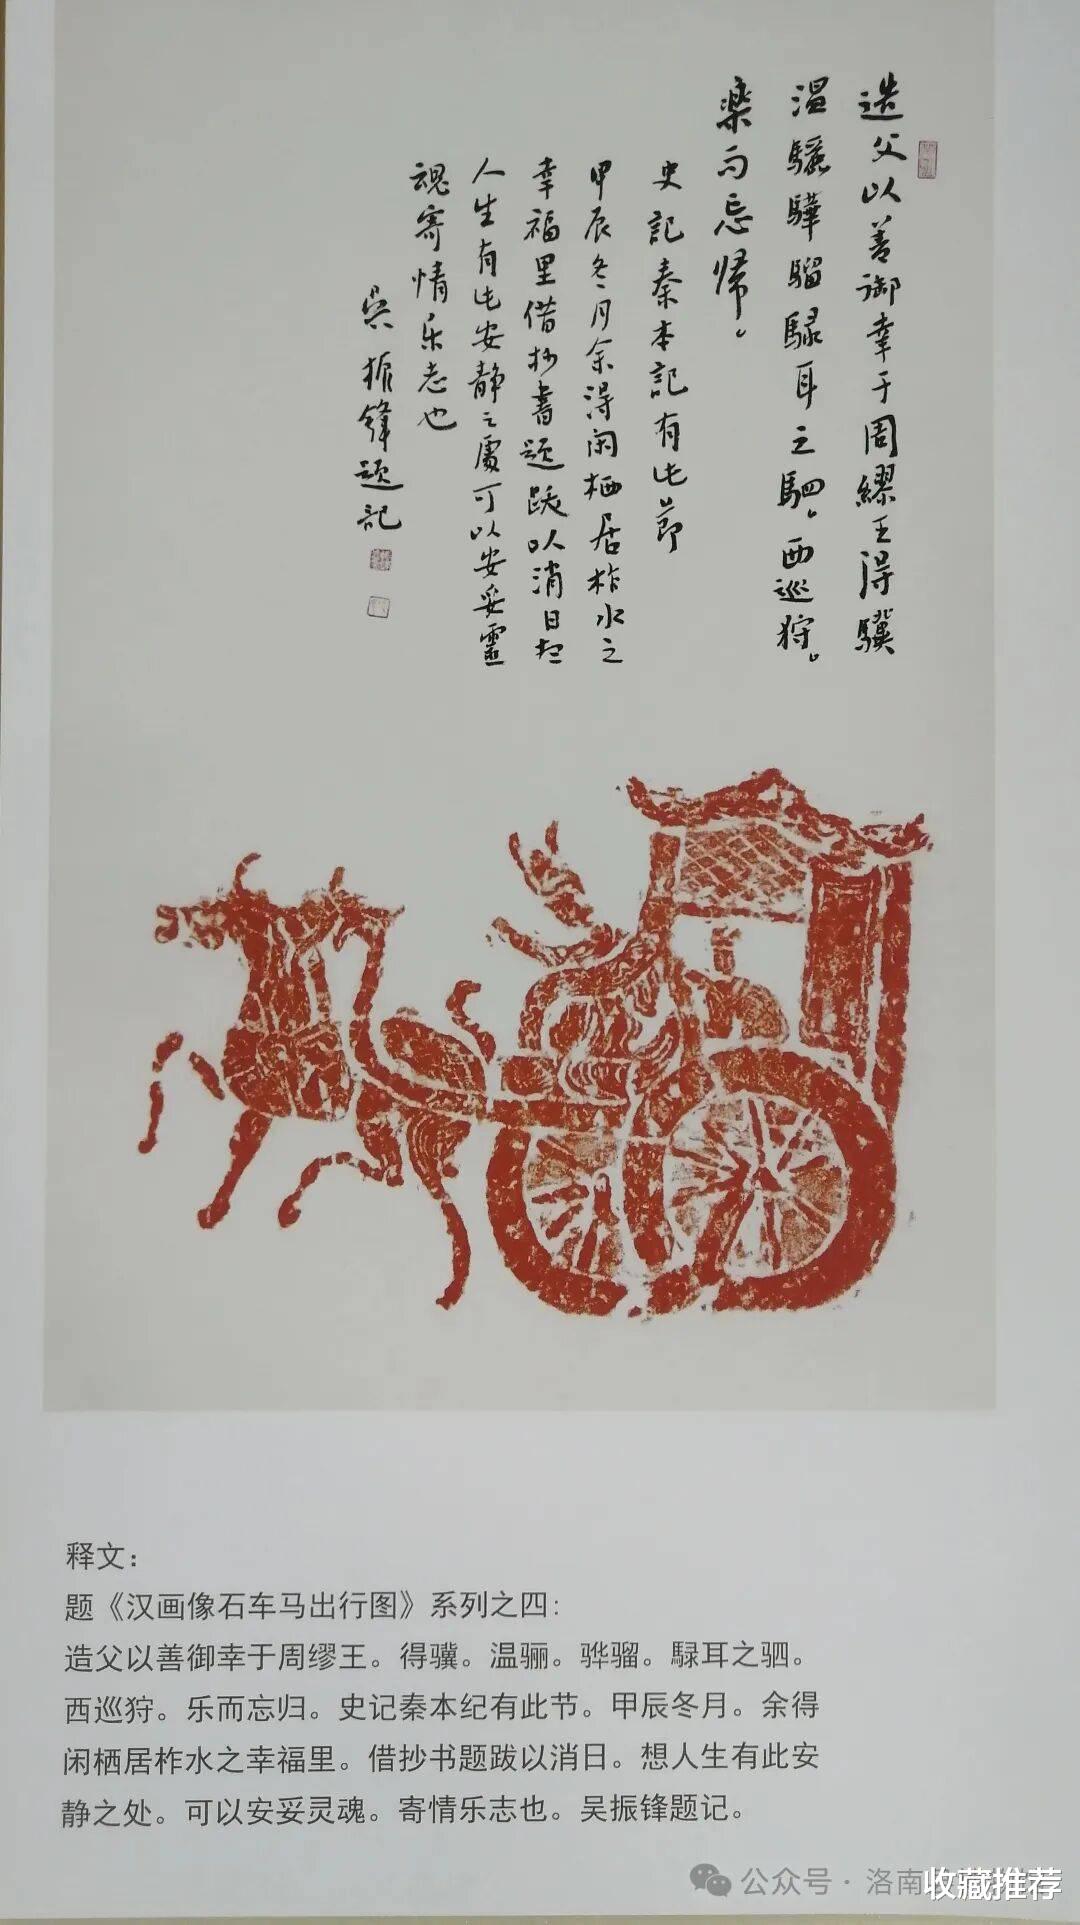 造父以善御幸于周繆王得驥
温驪驊騮騄耳之駟。西巡狩。
樂而忘帰。
史記秦本記有此節
甲辰冬月余得闲栖居柞水之
幸福里借抄書题跋以消日想
人生有此安静之處可以安妥靈
魂寄情乐志也
吴振鋒题記
释文：
题《汉画像石车马出行图》系列之四：
造父以善御幸于周缪王。得骥。温骊。骅骝。騄耳之驷。
西巡狩。乐而忘归。史记秦本纪有此节。甲辰冬月。余得
闲栖居柞水之幸福里。借抄书题跋以消日。想人生有此安
静之处。可以安妥灵魂。寄情乐志也。吴振锋题记。
公众号·洛南
收藏推荐